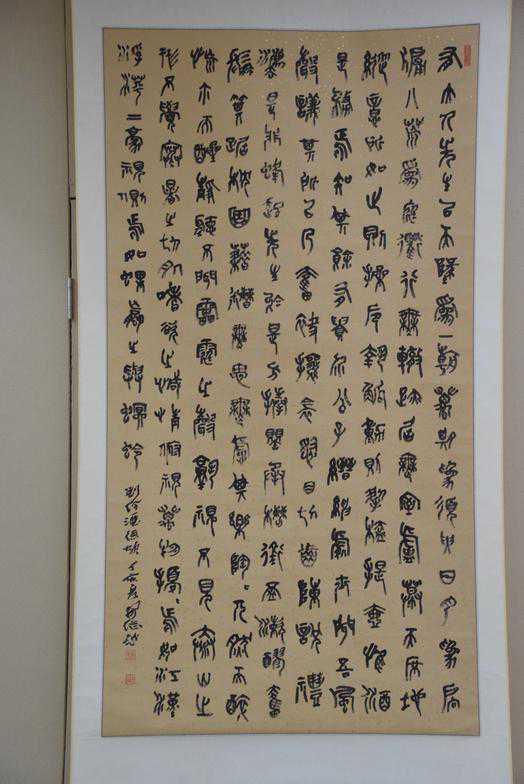 有大人先生以天地爲一朝萬期爲須臾日月爲扃
牖八荒爲庭衢行無轍跡居無室廬幕天席地
縱意所如止則操卮執觚動則挈榼提壺惟酒
是務焉知其餘有貴介公子縉紳處士聞吾風
聲議其所以乃奮袂攘襟怒目切齒陳說禮
法是非蜂起先生於是方捧罌承槽銜杯漱醪奮
髯箕踞枕麴藉糟無思無慮其樂陶陶兀然而醉
怳尒而醒靜聽不聞雷霆之聲孰視不見泰山之
形不覺寒暑之切肌嗜慾之感情俯視萬物擾擾焉如江漢
浮萍二豪視側焉如蜾蠃之與螟蛉 劉伶酒德頌